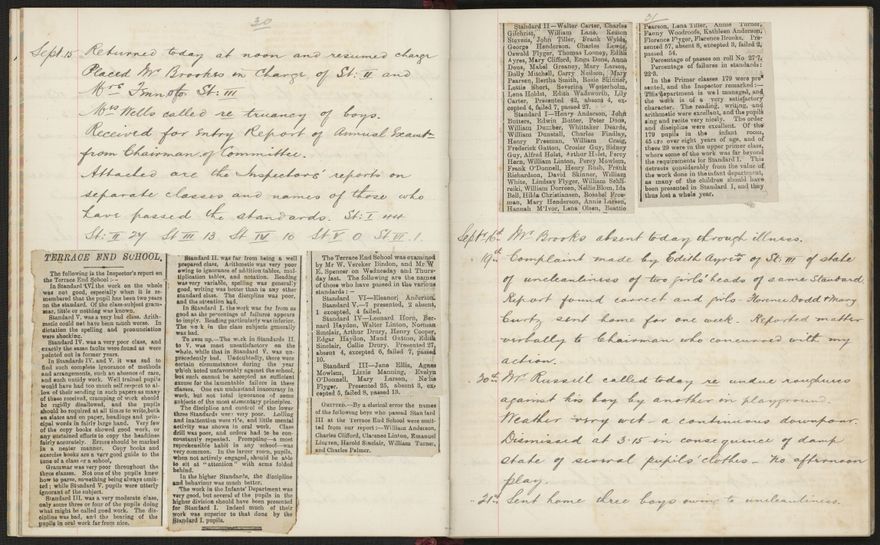 30
Sept. 15 Returned today at noon and resumed charge
Placed Mr Brookes in Charge of St: II and
St: III
Mrs Wells called re truancy of boys.
Received for Entry Report of Annual Exam
from Chairman of Committee.
Attached are the Inspectors' reports on
separate classes and names of those who
have passed the standards. St: I
St: II 27 St III 13 St IV 10 St V 0 St VI 1.
TERRACE END SCHOOL.
The following is the Inspector's report on
the Terrace End School :—
In Standard VI. the work on the whole
was not good, especially when it is re-
membered that the pupil has been two years
on the standard. Of the class-subject gram-
mar, little or nothing was known.
Standard V. was a very bad class. Arith-
metic could not have been much worse. In
dictation the spelling and punctuation
were shocking.
Standard IV. was a very poor class, and
exactly the same faults were found as were
pointed out in former years.
In Standards IV. and V. it was sad to
find such complete ignorance of methods
and arrangements, such an absence of care,
and such untidy work. Well trained pupils
would have had too much self respect to al-
low of their sending in such papers as some
of these received, cramping of work should
be rigidly disallowed, and the pupils
should be required at all times to write, both
on slates and on paper, headings and prin-
cipal words in fairly large hand. Very few
of the copy books showed good work, or
any sustained efforts to copy the headlines
fairly accurately. Errors should be marked
in a neater manner. Copy books and
exercise books are a very good guide to the
tone of a class or a school.
Grammar was very poor throughout the
three classes. Not one of the pupils knew
how to parse, something being always omit-
ted; while Standard V. pupils were utterly
ignorant of the subject.
Standard III. was a very moderate class,
only some three or four of the pupils doing
what might be called good work. The dis-
cipline was bad, and the bearing of the
pupils in oral work far from nice.
Standard II. was far from being a well
prepared class. Arithmetic was very poor
owing to ignorance of addition tables, mul-
tiplication tables, and notation. Reading
was very variable, spelling was generally
good, writing was better than in any other
standard class. The discipline was poor,
and the attention bad.
In Standard I. the work was far from as
good as the percentage of failures appears
to imply. Reading particularly was inferior.
The work in the class subjects generally
was bad.
To sum up.—The work in Standards II.
to V. was most unsatisfactory on the
whole, while that in Standard V. was un-
precedently bad. Undoubtedly, there were
certain circumstances during the year
which acted unfavorably against the school,
but such cannot be accepted as sufficient
excuse for the lamentable failure in these
classes. One can understand inaccuracy in
work, but not total ignorance of some
subjects of the most elementary principles.
The discipline and control of the lower
three Standards were very poor. Lolling
and inattention were rife, and little mental
activity was shown in oral work. Class
drill was poor, and orders had to be con-
stantly repeated. Prompting—a most
reprehensible habit in any school—was
very common. In the larger room, pupils,
when not actively engaged, should be able
to sit at "attention" with arms folded
behind.
In the higher Standards, the discipline
and behaviour was much better.
The work in the Infants' Department was
very good, but several of the pupils in the
higher division should have been presented
for Standard I. Indeed much of their
work was superior to that done by the
Standard I. pupils.
The Terrace End School was examined
by Mr W. Vereker Bindon, and Mr. W.
E. Spencer on Wednesday and Thurs-
day last. The following are the names
of those who have passed in the various
standards :—
Standard VI—Eleanor Anderson.
Standard V.—7 presented, 2 absent,
1 excepted, 4 failed.
Standard IV—Leonard Horn, Ber-
nard Haydon, Walter Linton, Norman
Sinclair, Arthur Drury, Henry Cooper,
Edgar Haydon, Maud Oatton, Edith
Sinclair, Callie Drury. Presented 27,
absent 4, excepted 6, failed 7, passed
10.
Standard III—Jane Ellis, Agnes
Mowlem, Lizzie Manning, Evelyn
O'Donnell, Mary Larsen, Nellie
Flyger. Presented 23, absent 3, ex-
cepted 5, failed 8, passed 13.
OMITTED.—By a clerical error the names
of the following boys who passed Standard
III at the Terrace End School were omit-
ted from our report :—William Anderson,
Charles Clifford, Clarence Linton, Emanuel
Linzren, Harold Sinclair, William Turner,
and Charles Palmer.
31
Standard II—Walter Carter, Charles
Gilchrist, William Lane, Keison
Stevens, John Tiller, Frank Wylds,
George Henderson, Charles Lewis,
Oswald Flyger, Thomas Looney, Edith
Ayres, Mary Clifford, Enga Dons, Anna
Dons, Mabel Greaney, Mary Larsen,
Dolly Mitchell, Carry Neilson, Mary
Pearsen, Bertha Smith, Rosie Skinner,
Lottie Short, Severina Westerholm,
Lena Holdst, Edith Wadsworth, Lily
Carter. Presented 42, absent 4, ex-
cepted 4, failed 7, passed 27.
Standard I—Henry Anderson, John
Botters, Edwin Botter, Peter Dons,
William Dumber, Whittaker Deards,
William Dunstall, Charles Findlay,
Henry Freeman, William Craig,
Frederick Gatton, Crosier Guy, Sidney
Guy, Alfred Holst, Arthur Holst, Percy
Horn, William Linton, Percy Mowlem,
Frank O'Donnell, Henry Ritch, Victor
Richardson, David Skinner, William
White, Lindsay Flyger, William Schlf-
reiki, William Dorreen, Nellie Blom, Ida
Bell, Hilda Christiansen, Rosabel Free-
man, Mary Henderson, Annie Larsen,
Hannah M'Ivor, Lena Olsen, Beattie
Pearson, Lena Tiller, Annie Turner,
Fanny Woodroofe, Kathleen Anderson,
Florence Flyger, Florence Brooks. Pre-
sented 67, absent 8, excepted 3, failed 2,
passed 54.
Percentage of passes on roll No 27·7.
Percentage of failures in standards:
22·8.
In the Primer classes 179 were pre-
sented, and the Inspector remarked :—
This department is well managed, and
the work is of a very satisfactory
character. The reading, writing, and
arithmetic were excellent, and the pupils
sing and recite very nicely. The order
and discipline were excellent. Of the
179 pupils in the infant room,
45 are over eight years of age, and of
these 29 were in the upper primer class,
where some of the work was far beyond
the requirements for Standard I. This
detracts considerably from the value of
the work done in the infant department,
as many of the children should have
been presented in Standard I, and they
thus lost a whole year.
Sept. 16th Mr Brooks absent today through illness.
" 19th Complaint made by Edith Ayres of St: III of state
of uncleanliness of two girls' heads of same Standard
Report found correct and girls - Florence Dodd & Mary
Curty sent home for one week. Reported matter
verbally to Chairman who concurred with my
action.
" 20th Mr Russell called today re undue roughness
against his boy by another in playground.
Weather very wet a continuous downpour.
Dismissed at 3·15 in consequence of damp
state of several pupils' clothes - No afternoon
play.
" 21st Sent home three boys owing to uncleanliness.